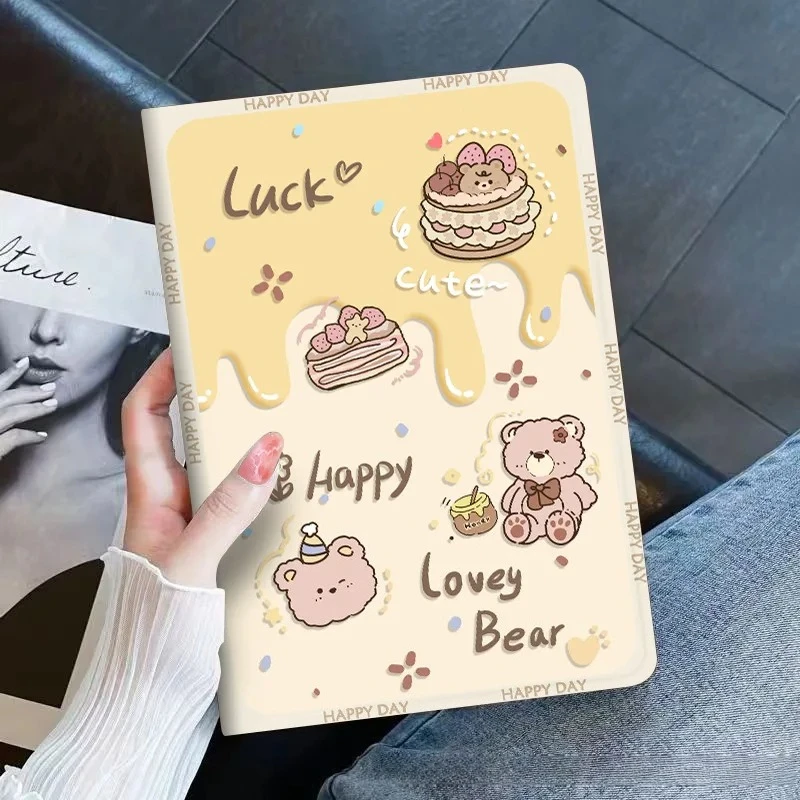 HAPPY DAY
HAPPY DAY
Luck
cute~
HAPPY DAY
HAPPY DAY
HAPPY DAY
HAPPY DAY
Happy
Honey
HAPPY DAY
Lovey
Bear
HAPPY DAY
HAPPY DAY
lture.